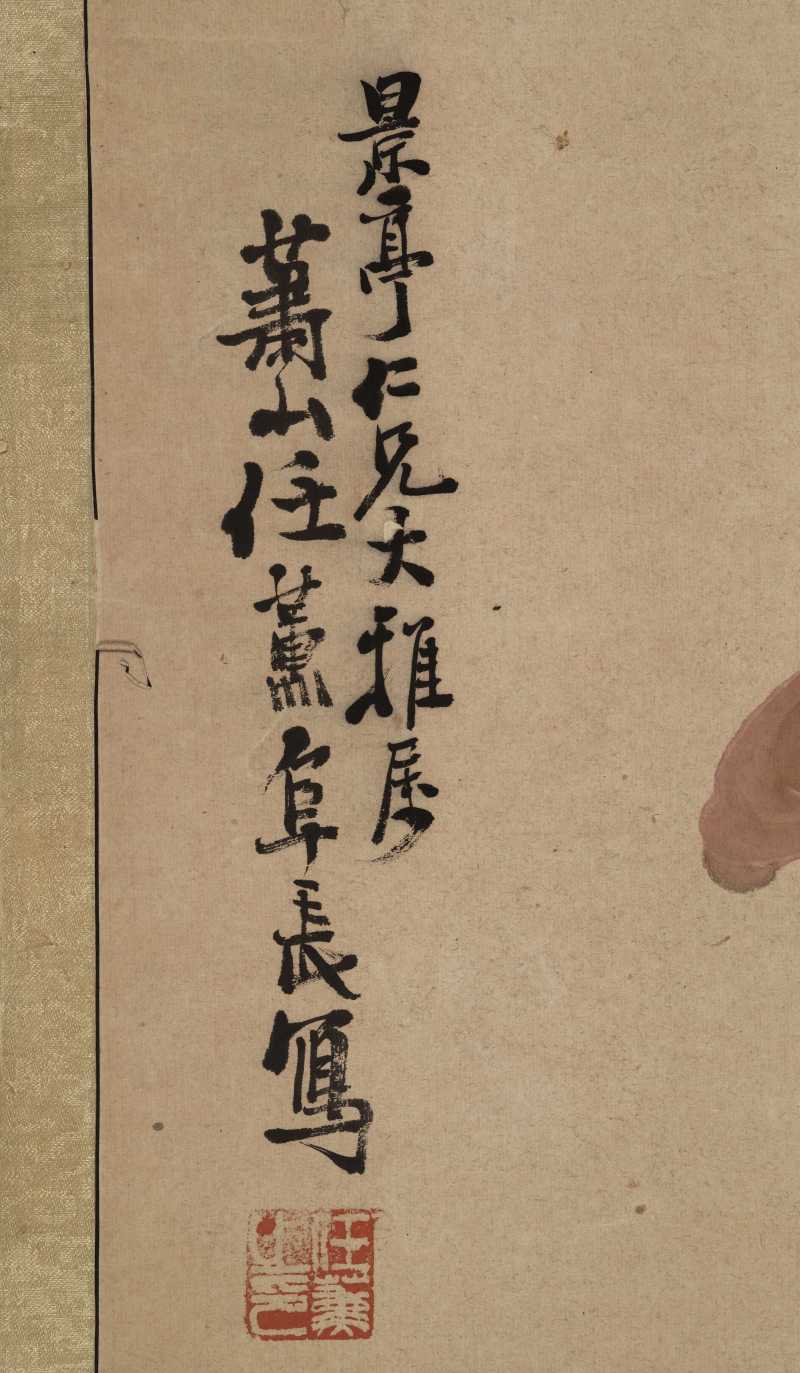 景亭仁兄大雅属
蕭山任薰阜長寫
任薰